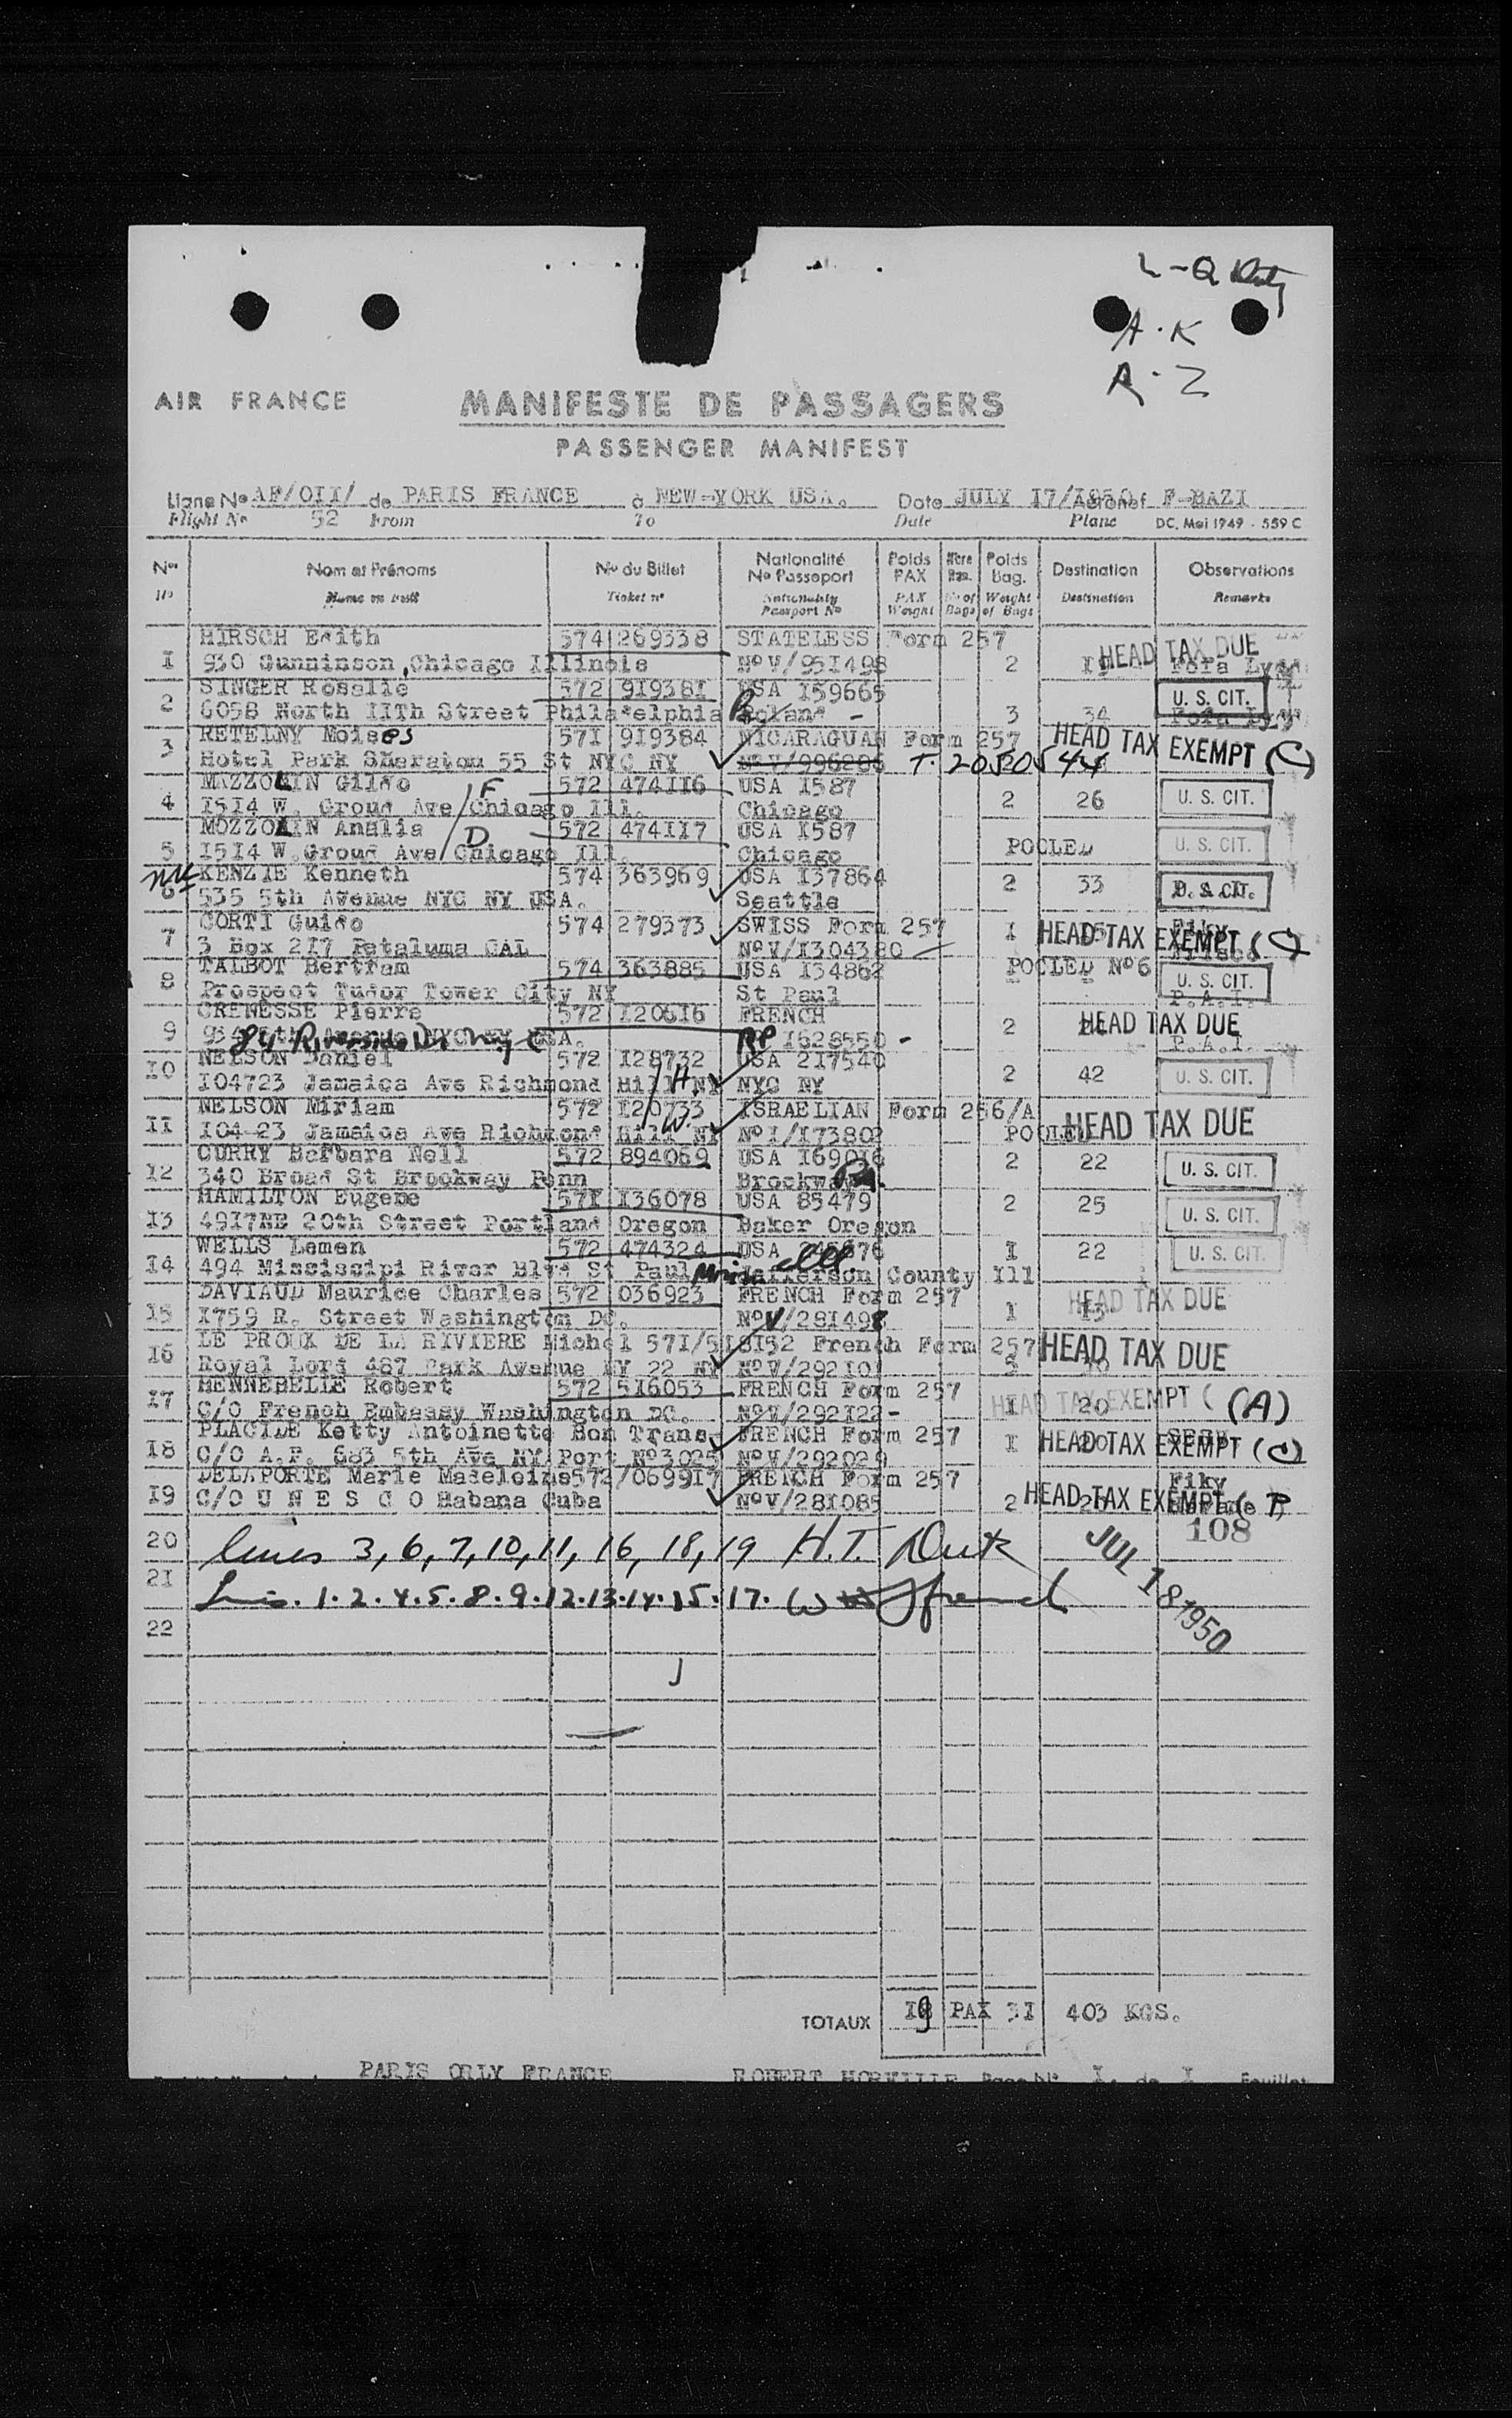 L-Q
A.K
R-Z
AIR FRANCE
MANIFESTE DE PASSAGERS
PASSENGER MANIFEST
Ligne No AF/OII/ de PARIS FRANCE à NEW-YORK USA. Date JULY I7/I950 Aéronef F-BAZI
Flight No 52 From To Date Plane DC. Mai 1949 - 559 C
Nos Nom et Prénoms No du Billet Nationalité No Passeport Poids PAX Nbre Bag. Poids Bag. Destination Observations
No Ticket no Nationality Passport No PAX Weight No of Bags Weight of Bags Destination Remarks
HIRSCH Edith 574 269338 STATELESS Form 257 HEAD TAX DUE
I 930 Gunninson,Chicago Illinois No V/951498 2 19
SINGER Rosalie 572 919381 USA I59665 U. S. CIT.
2 6058 North IITh Street Philadelphia Poland - 3 34
RETELNY Moises 571 919384 NICARAGUAN Form 257 HEAD TAX EXEMPT (C)
3 Hotel Park Sheraton 55 St NYC NY No V/996286 T-2050544
MAZZOLIN Gildo F 572 474II6 USA I587
4 I5I4 W. Groud Ave Chicago Ill. Chicago 2 26 U. S. CIT.
MOZZOLIN Analia D 572 474II7 USA I587
5 I5I4 W.Groud Ave Chicago Ill. Chicago POOLED U. S. CIT.
KENZIE Kenneth 574 363969 USA I37864
6 535 5th Avenue NYC NY USA. Seattle 2 33
CORTI Guido 574 279373 SWISS Form 257
7 3 Box 2I7 Petaluma CAL No V/I304380 I HEAD TAX EXEMPT (C)
TALBOT Bertram 574 363885 USA I34862 POOLED No 6
8 Prospect Tudor Tower City NY St Paul U. S. CIT.
P.A.I.
CRENESSE Pierre 572 I20616 FRENCH
9 84 Riverside Dr NYC USA. PP I628550 - 2 HEAD TAX DUE
P.A.I.
NELSON Daniel 572 I28732 USA 2I7540
IO I04723 Jamaica Ave Richmond Hill NY H. NYC NY 2 42 U. S. CIT.
NELSON Miriam 572 I20733 ISRAELIAN Form 256/A
II I04-23 Jamaica Ave Richmond Hill NY W. No I/I73802 POOLED HEAD TAX DUE
CURRY Barbara Nell 572 894069 USA I69016
I2 340 Broad St Brockway Penn Brockway Pa. 2 22 U. S. CIT.
HAMILTON Eugene 571 I36078 USA 85479
I3 49I7NE 20th Street Portland Oregon Baker Oregon 2 25 U. S. CIT.
WELLS Lemen 572 474324 USA
I4 494 Mississipi River Blvd St Paul Minn Jefferson County Ill I 22 U. S. CIT.
DAVIAUD Maurice Charles 572 036923 FRENCH Form 257
I5 I759 R. Street Washington DC. No V/28I498 I 13 HEAD TAX DUE
LE PROUX DE LA RIVIERE Michel 57I/5I8I52 French Form 257
I6 Royal Lord 487 Park Avenue NY 22 NY No V/292I01 HEAD TAX DUE
HENNEBELLE Robert 572 5I6053 FRENCH Form 257
I7 C/O French Embassy Washington DC. No V/292I22- I 20 HEAD TAX EXEMPT (A)
PLACIDE Ketty Antoinette Bon Trans. FRENCH Form 257
I8 C/O A.F. 683 5th Ave NY Port No 3025 No V/292029 I HEAD TAX EXEMPT (C)
DELAPORTE Marie Madeleine 572/069917 FRENCH Form 257 Fiky
I9 C/O U N E S C O Habana Cuba No V/28I085 2 HEAD TAX EXEMPT (P)
108
20 lines 3, 6, 7, 10, 11, 16, 18, 19 H.T.
JUL 18 1950
21 Lines. 1.2.4.5.8.9.12.13.14.15.17.
22
TOTAUX 19 PAX 3I 403 KGS.
PARIS ORLY FRANCE ROBERT